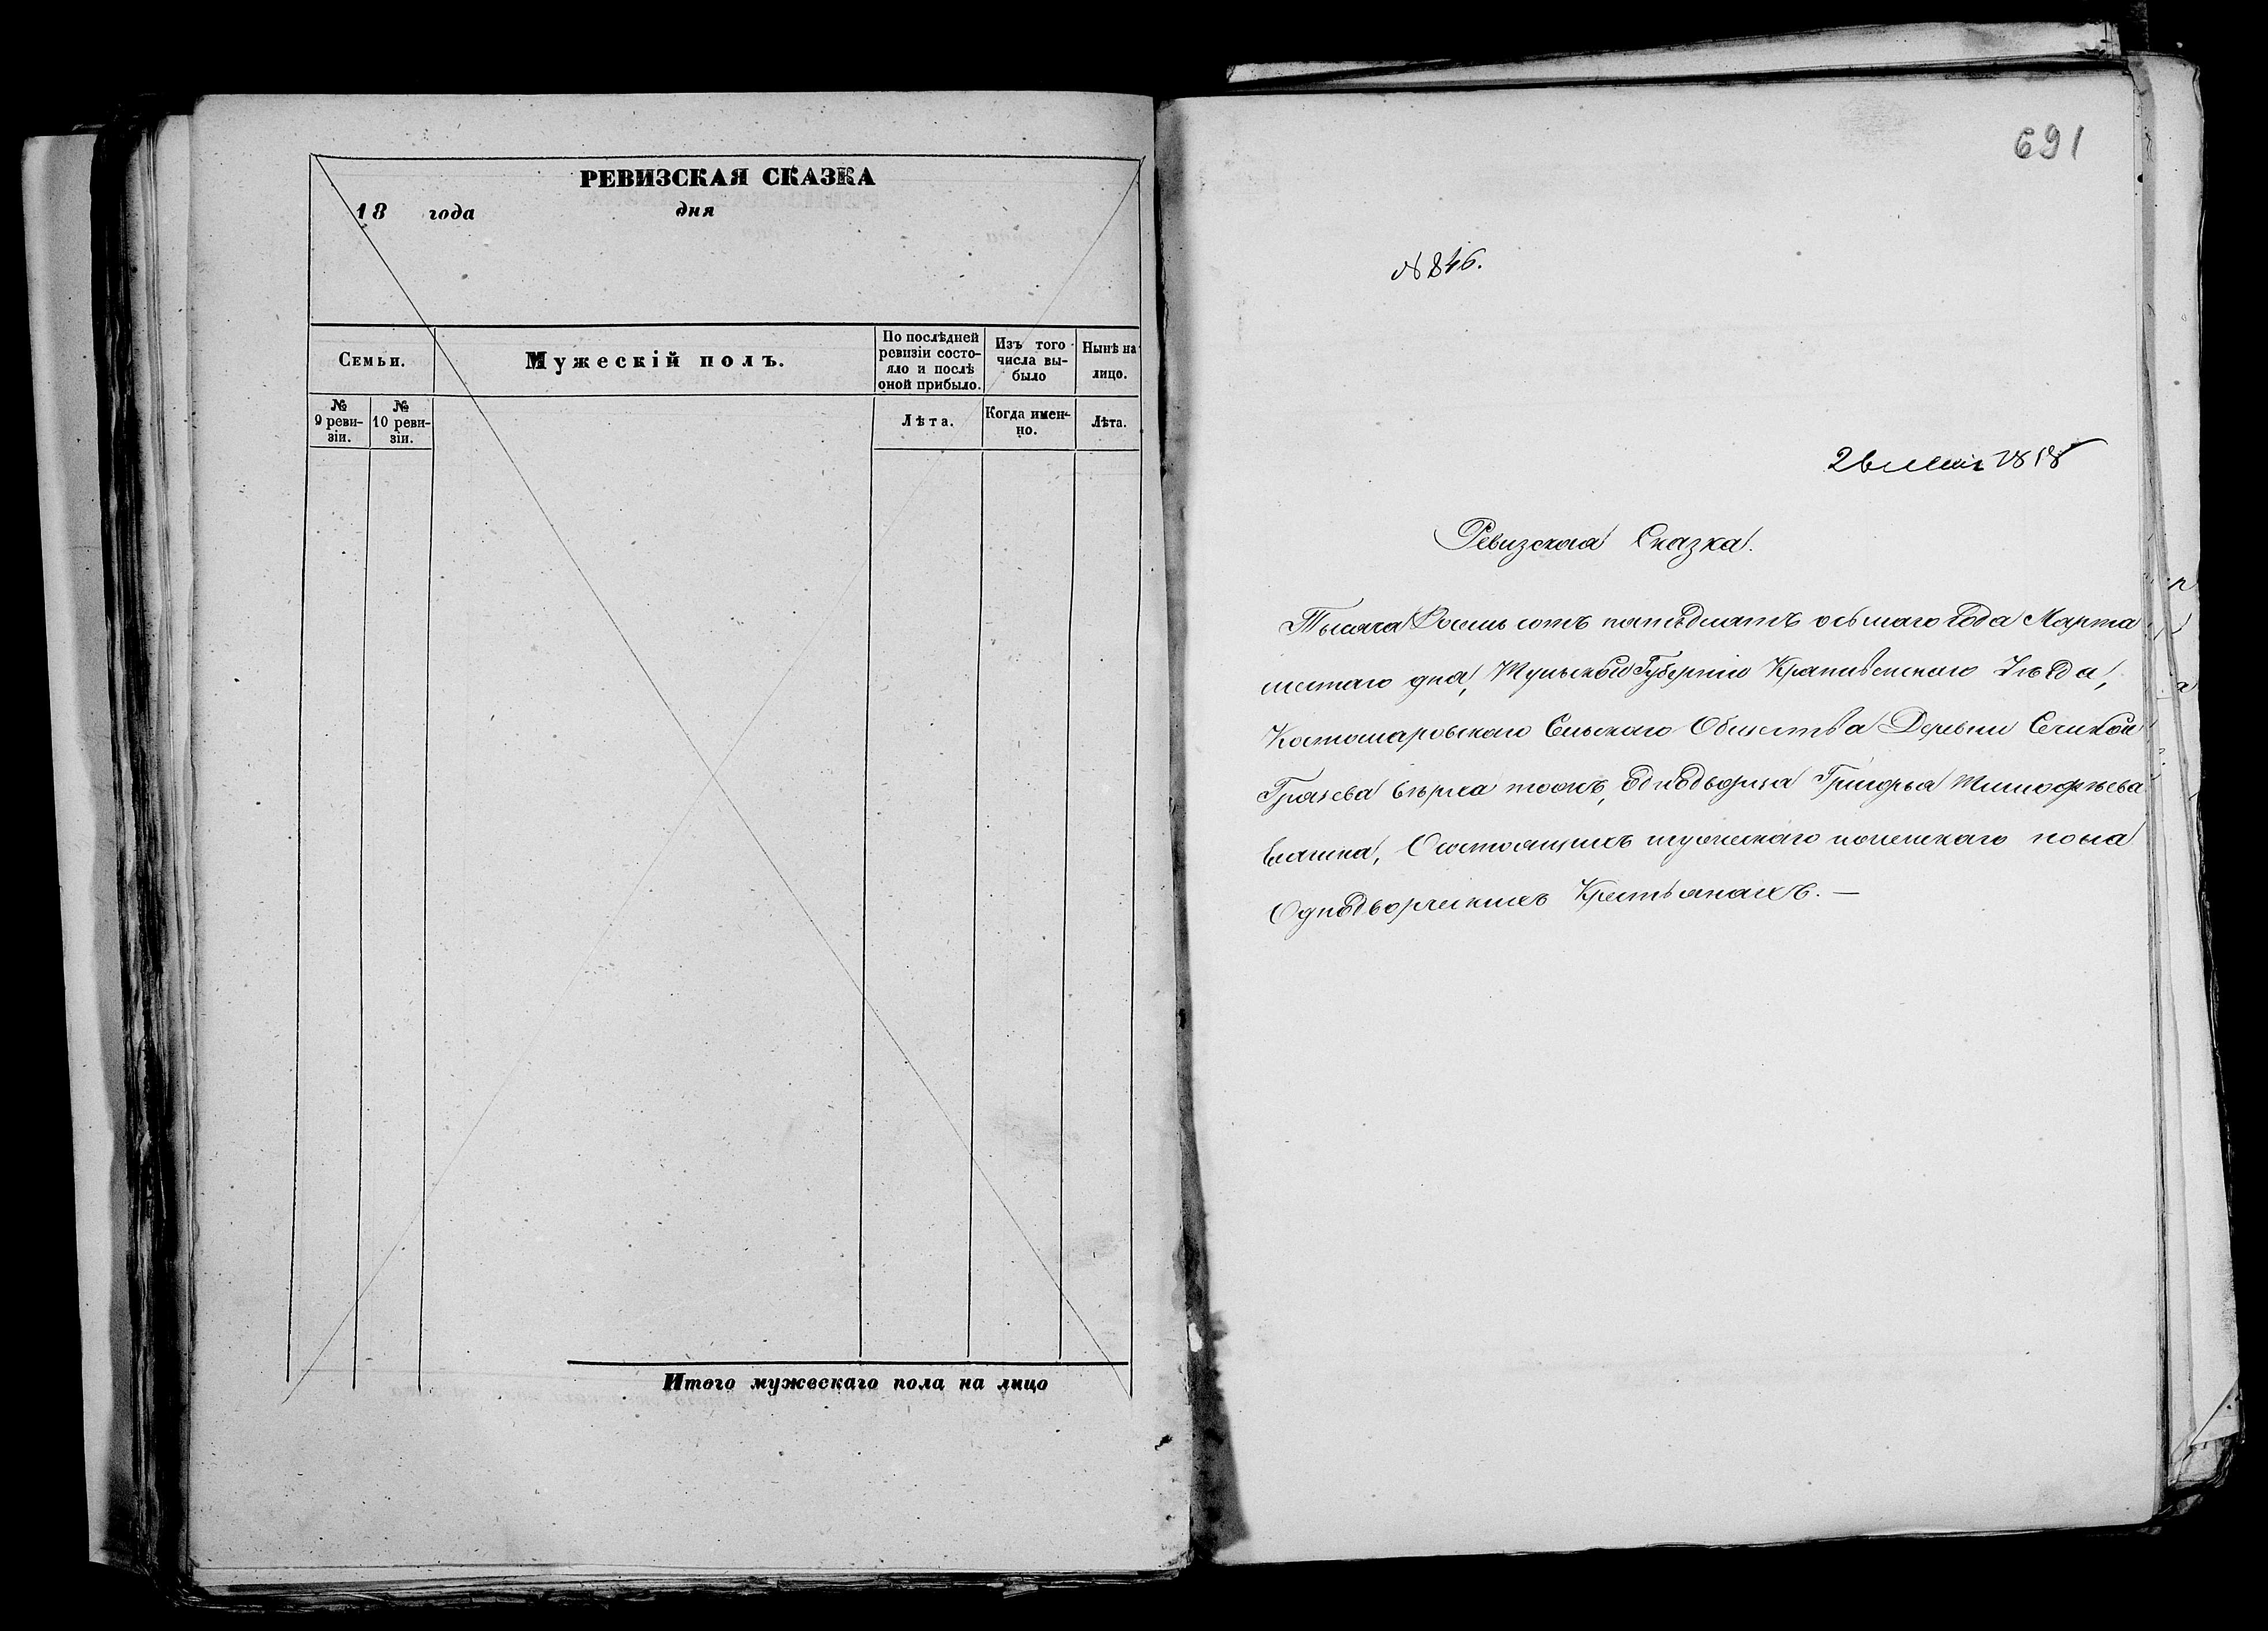 РЕВИЗСКАЯ СКАЗКА
18 года дня
Семьи.
Мужескій полъ.
По послѣдней ревизіи состо-
яло и послѣ оной прибыло.
Изъ того числа вы-
было
Нынѣ на лицо.
№ 9 реви-
зіи.
№ 10 реви-
зіи.
Лѣта.
Когда имен-
но.
Лѣта.
Итого мужескаго пола на лицо
691
№ 846.
1858
Ревизская Сказка.
Тысяча Восемь сотъ пятьдесятъ осьмаго Года Марта
шестаго дня, Тульской Губерніи Крапивенскаго Уѣзда,
Костомаровскаго Сельскаго Общества Деревни
тожъ, однодворца Григорья Тимофѣева
Состоящихъ мужескаго и женскаго пола
Однодворческихъ Крестьянахъ. —